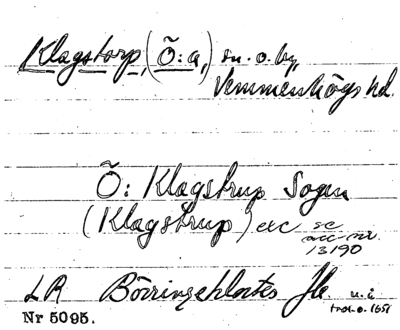 Klagstorp, (Õ: a,) sn. o. by,
Vemmenhögs hd.
Õ: Klagstrup Sogn
(Klagstrup) etc se
acc nr.
13190
LR Börringeklosters Jb. u. å
trol. o. 1651
Nr 5095.